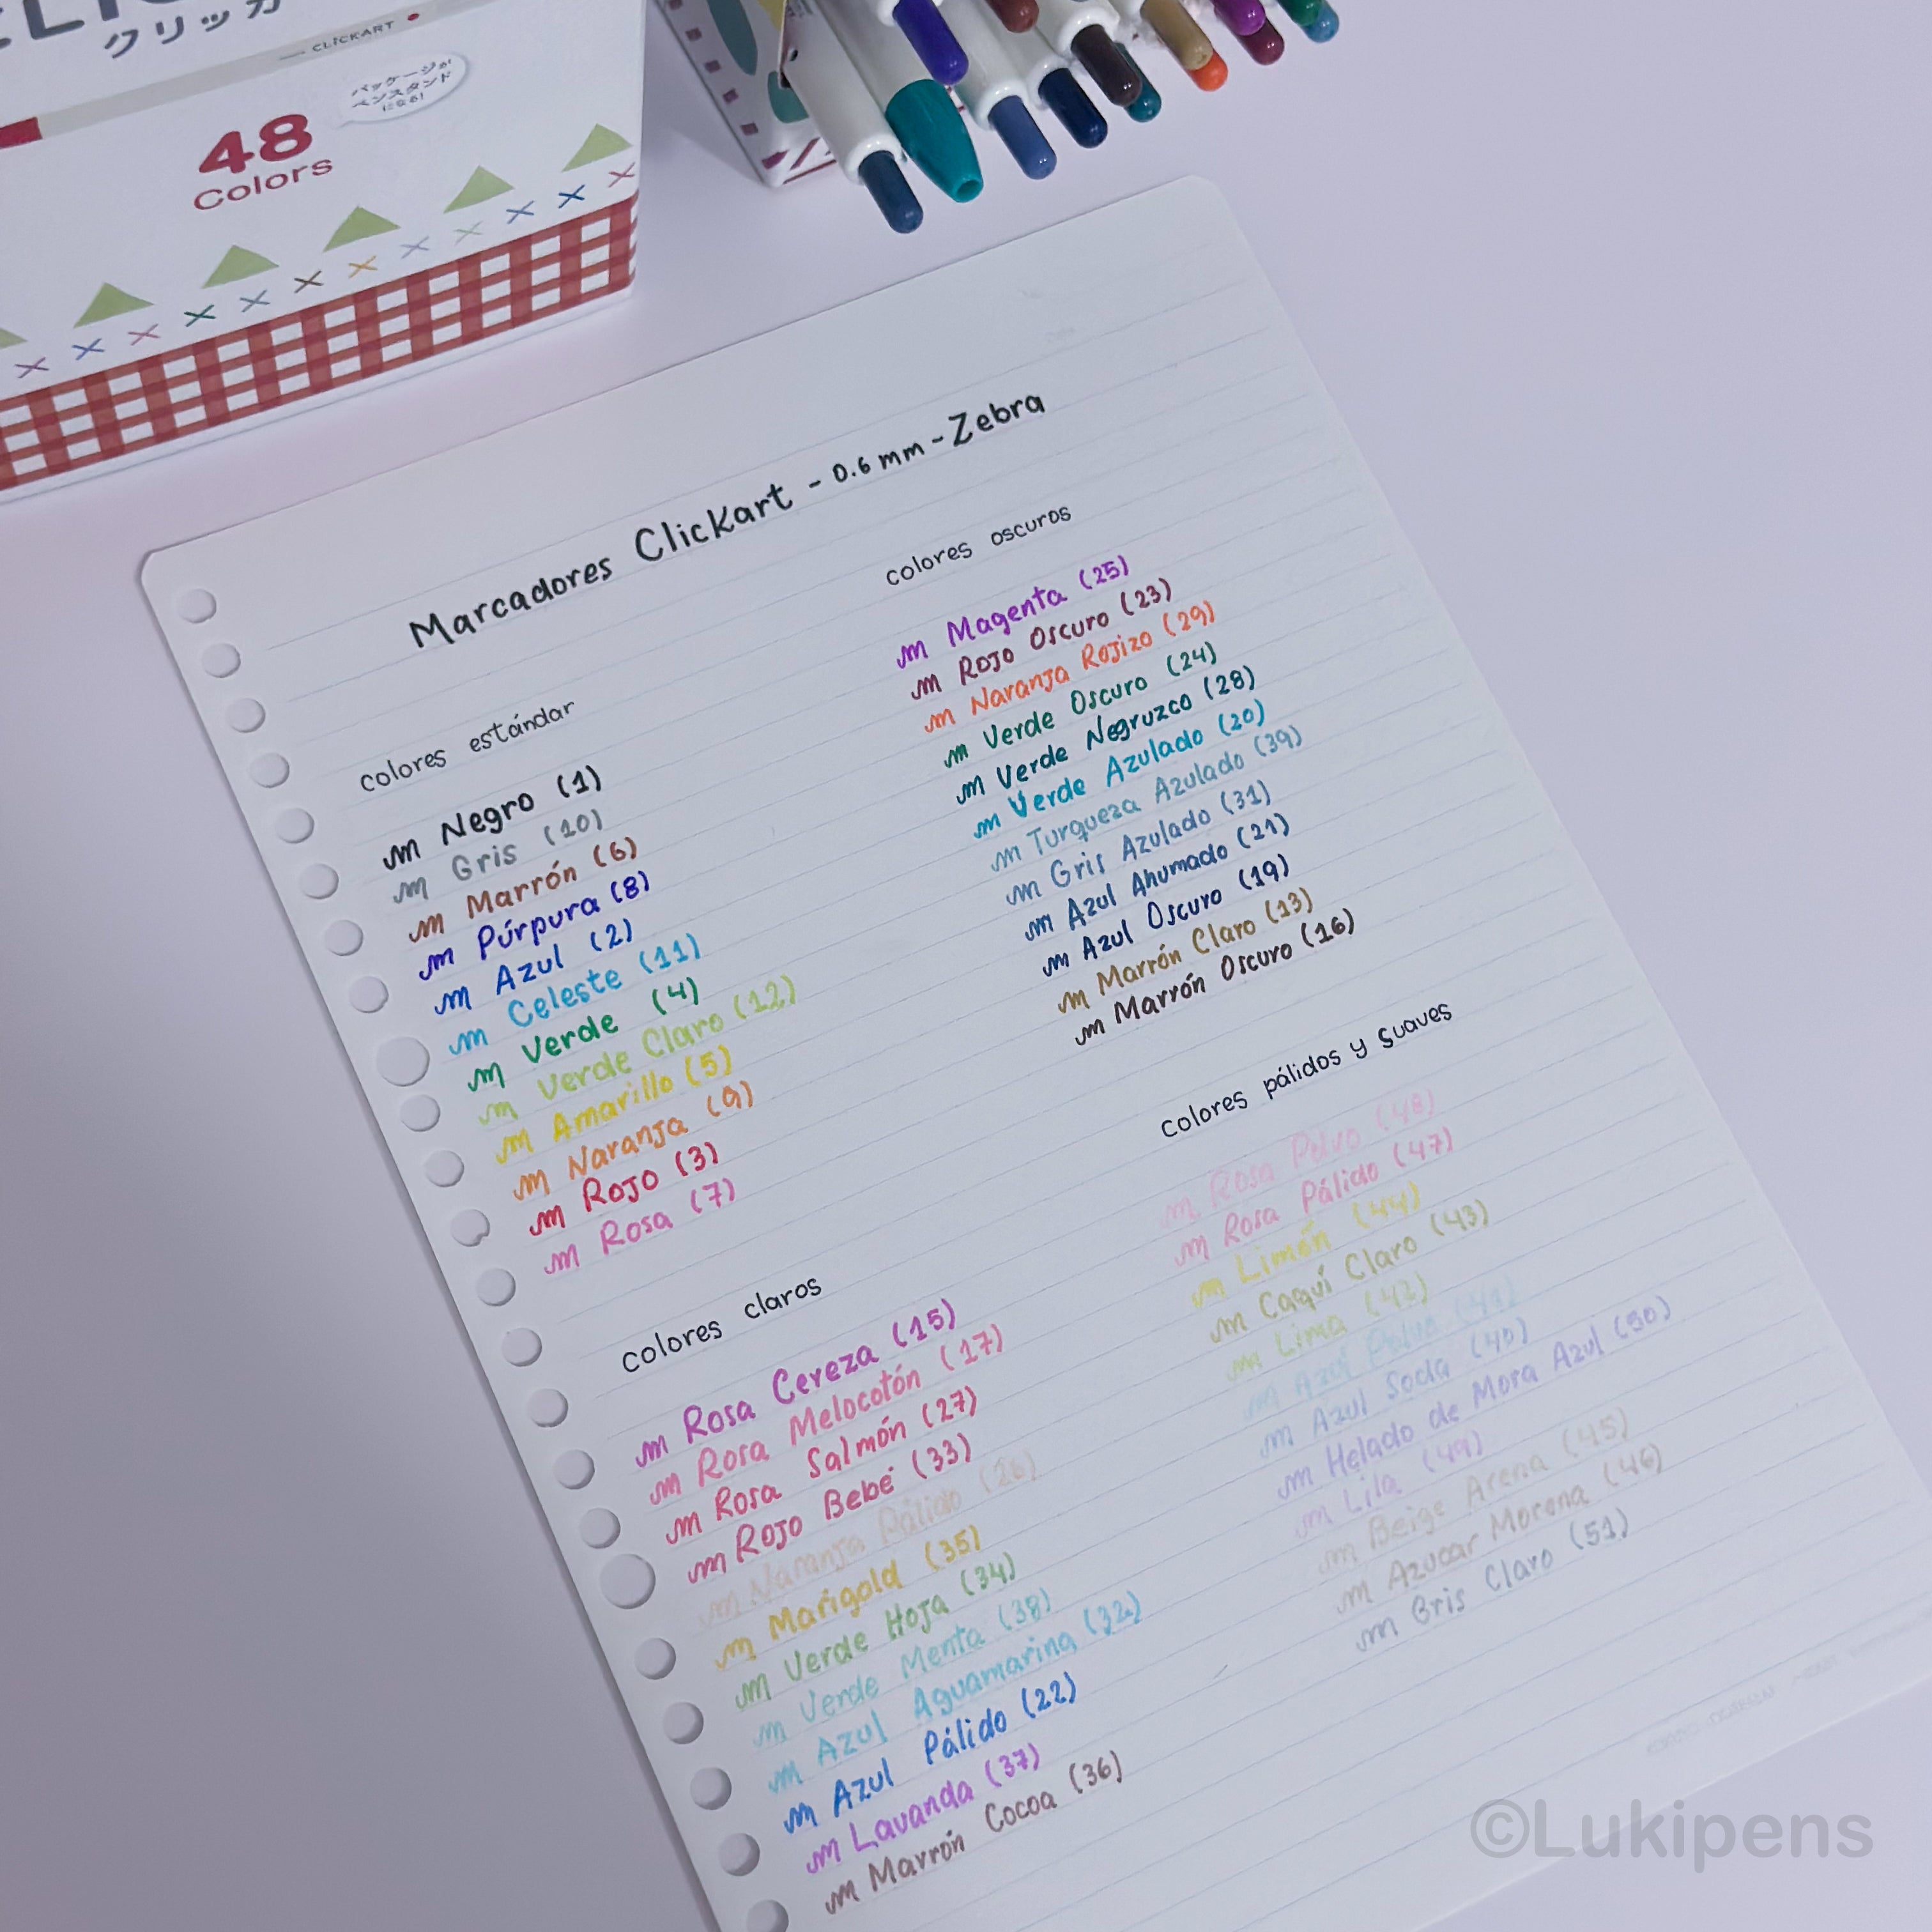 クリッカ
CLiCKART
パッケージが
ペンスタンド
になる!
48
Colors
Marcadores ClicKart - 0.6 mm - Zebra
colores estándar
Negro (1)
Gris (10)
Marrón (6)
Púrpura (8)
Azul (2)
Celeste (11)
Verde (4)
Verde Claro (12)
Amarillo (5)
Naranja (9)
Rojo (3)
Rosa (7)
colores claros
Rosa Cereza (15)
Rosa Melocotón (17)
Rosa Salmón (27)
Rojo Bebé (33)
Naranja Pálido (26)
Marigold (35)
Verde Hoja (34)
Verde Menta (38)
Azul Aguamarina (32)
Azul Pálido (22)
Lavanda (37)
Marrón Cocoa (36)
colores oscuros
Magenta (25)
Rojo Oscuro (23)
Naranja Rojizo (29)
Verde Oscuro (24)
Verde Negruzco (28)
Verde Azulado (20)
Turqueza Azulado (39)
Gris Azulado (31)
Azul Ahumado (21)
Azul Oscuro (19)
Marrón Claro (13)
Marrón Oscuro (16)
colores pálidos y suaves
Rosa Polvo (48)
Rosa Pálido (47)
Limón (44)
Caqui Claro (43)
Lima (42)
Azul Polvo (41)
Azul Soda (40)
Helado de Mora Azul (50)
Lila (49)
Beige Arena (45)
Azucar Morena (46)
Gris Claro (51)
©Lukipens